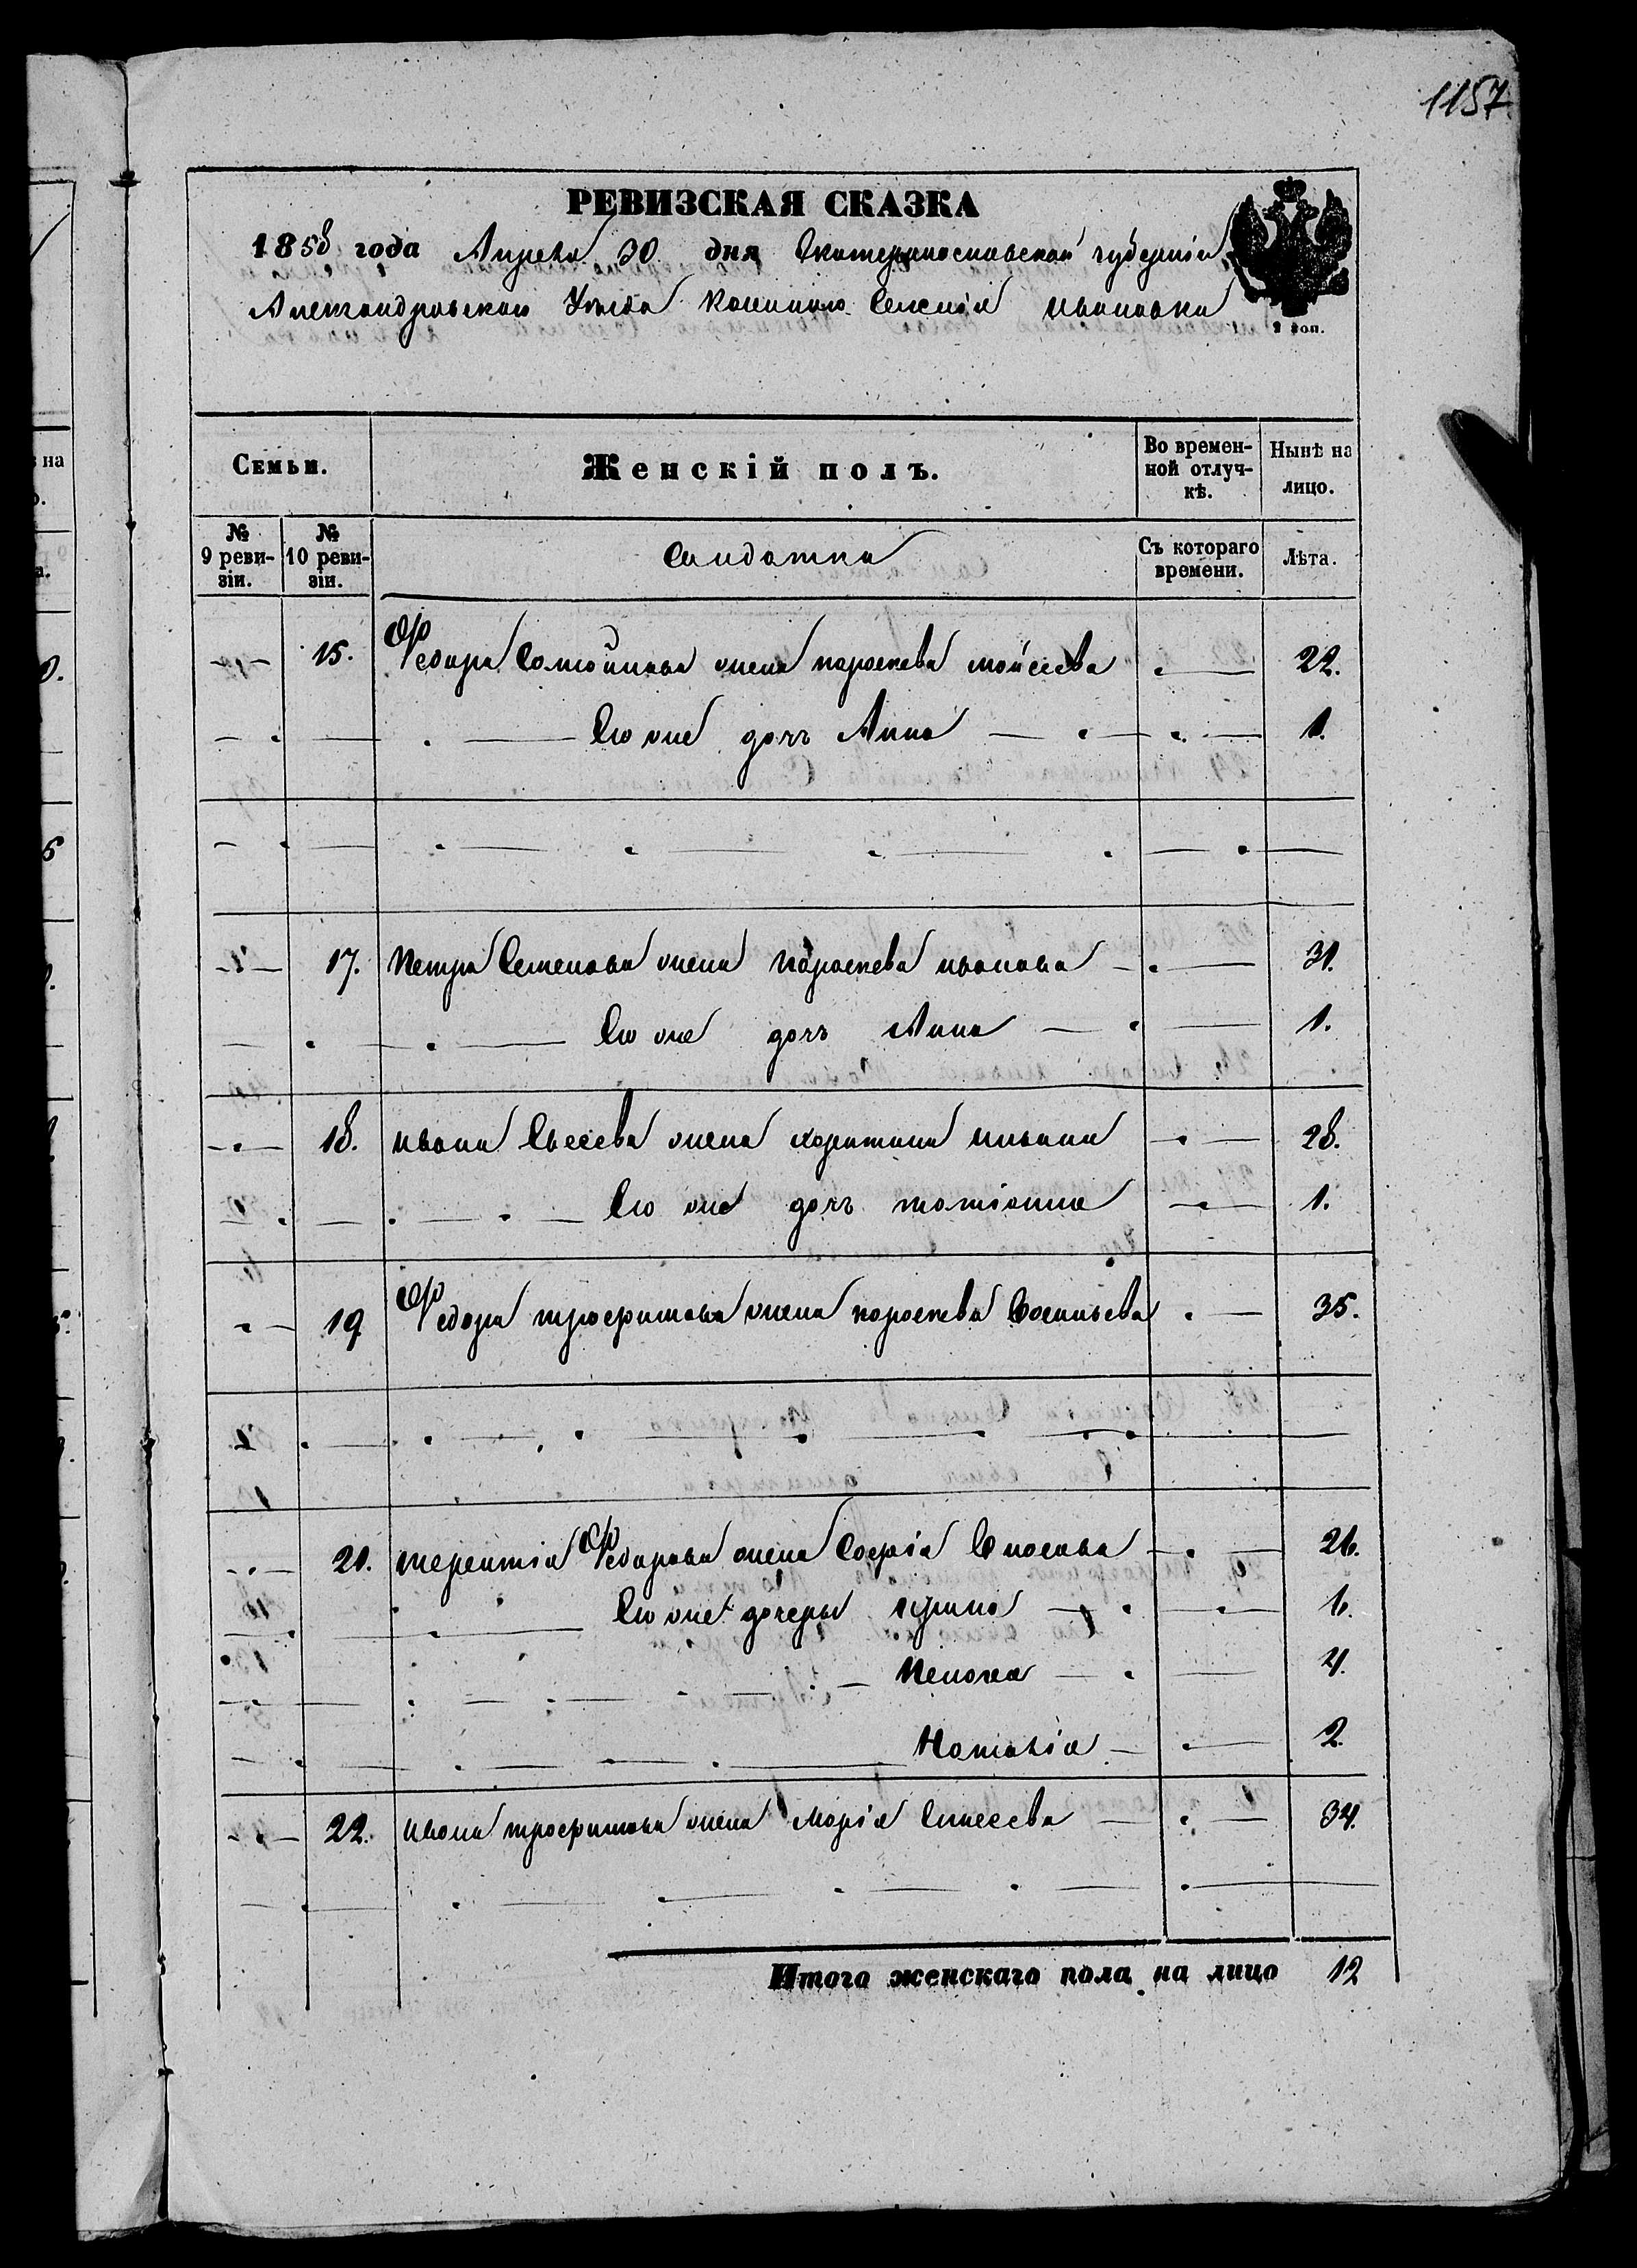 1157
РЕВИЗСКАЯ СКАЗКА
1858 года Апреля 30 дня Екатеринославской губерніи
Александровского Уезда Селенія Ивановки
2 коп.
Семьи. Женскій полъ. Во временной отлучкѣ. Нынѣ на лицо.
№ 9 ревизіи. № 10 ревизіи. Салдатка Съ котораго времени. Лѣта.
15. Федора жена Параскева Мойсеева 22.
Ею же дочъ Анна 1.
17. Петра Семенова жена Параскева Иванова 31.
Ею же дочъ Анна 1.
18. Ивана Евсеева жена Харитина 28.
Ею же дочъ Татіанна 1.
19 Федора Трофимова жена Параскева Васильева 35.
21. Терентія Федорова жена Софія Власова 26.
Ею же дочеры Ирина 6.
4.
Наталія 2.
22. Ивана Трофимова жена Марія Елисеева 34.
Итого женскаго пола на лицо 12